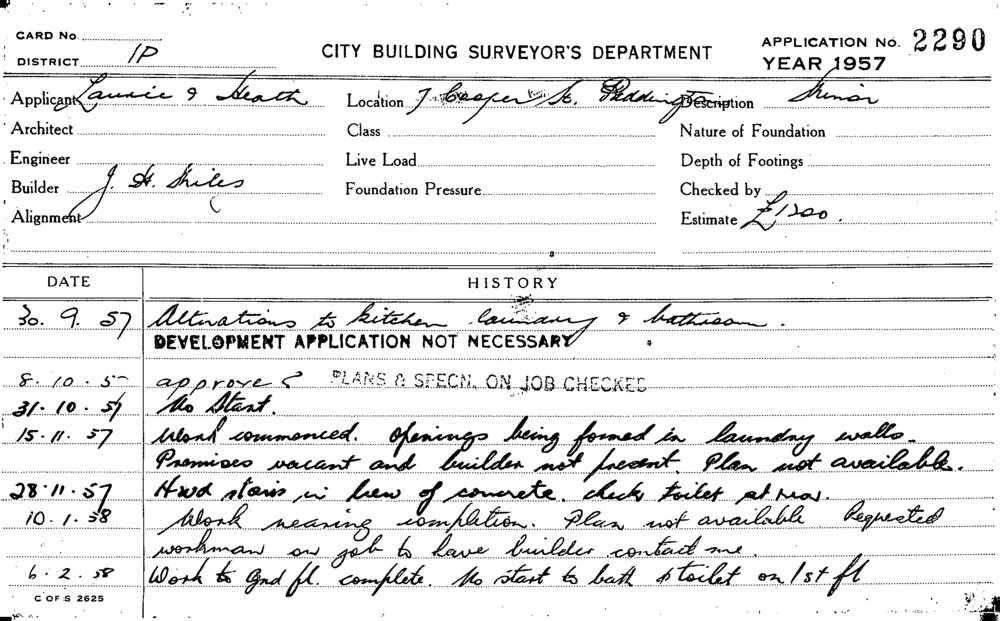 CARD No.
DISTRICT 1P
CITY BUILDING SURVEYOR'S DEPARTMENT
APPLICATION No. 2290
YEAR 1957
Applicant Laurie & Heath
Location 7 Cooper St. Paddington
Description Minor
Architect
Class
Nature of Foundation
Engineer
Live Load
Depth of Footings
Builder J. H. Miles
Foundation Pressure
Checked by
Alignment
Estimate £1200.
DATE HISTORY
30. 9. 57 Alterations to kitchen laundry & bathroom.
DEVELOPMENT APPLICATION NOT NECESSARY
8. 10. 5 approved PLANS & SPECN. ON JOB CHECKED
31. 10. 57 No Start.
15. 11. 57 Work commenced. Openings being formed in laundry walls.
Premises vacant and builder not present. Plan not available.
28. 11. 57 Hwd stairs in lieu of concrete. Check toilet at rear.
10. 1. 58 Work nearing completion. Plan not available Requested
workman on job to have builder contact me.
6. 2. 58 Work to Gnd fl. complete. No start to bath & toilet on 1st fl
C OF S 2625